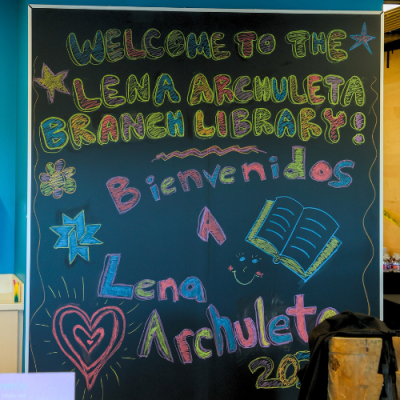 WELCOME TO THE
LENA ARCHULETA
BRANCH LIBRARY!
Bienvenidos
A
Lena
Archuleta